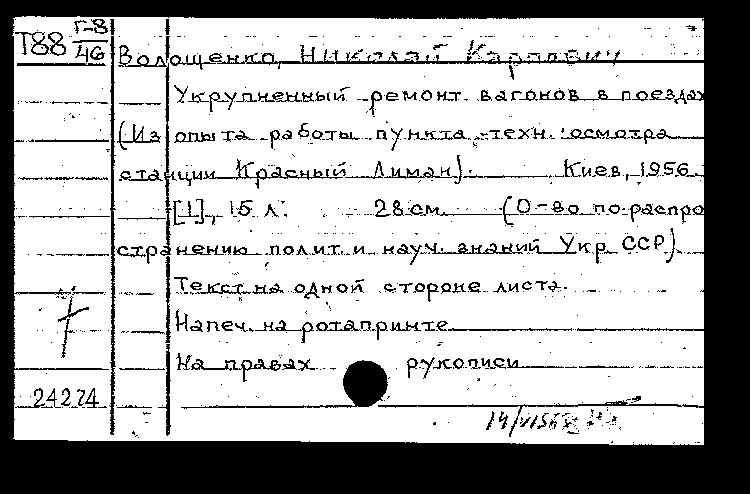 Г-8
Т88 46
Волощенко, Николай Карпович
Укрупненный ремонт вагонов в поездах
(Из опыта работы пункта техн. осмотра
станции Красный Лиман). Киев, 1956.
[1], 15 л. 28 см. (О-во по распро
странению полит. и науч. знаний Укр ССР).
Текст на одной стороне листа.
Напеч. на ротапринте
На правах рукописи
24274